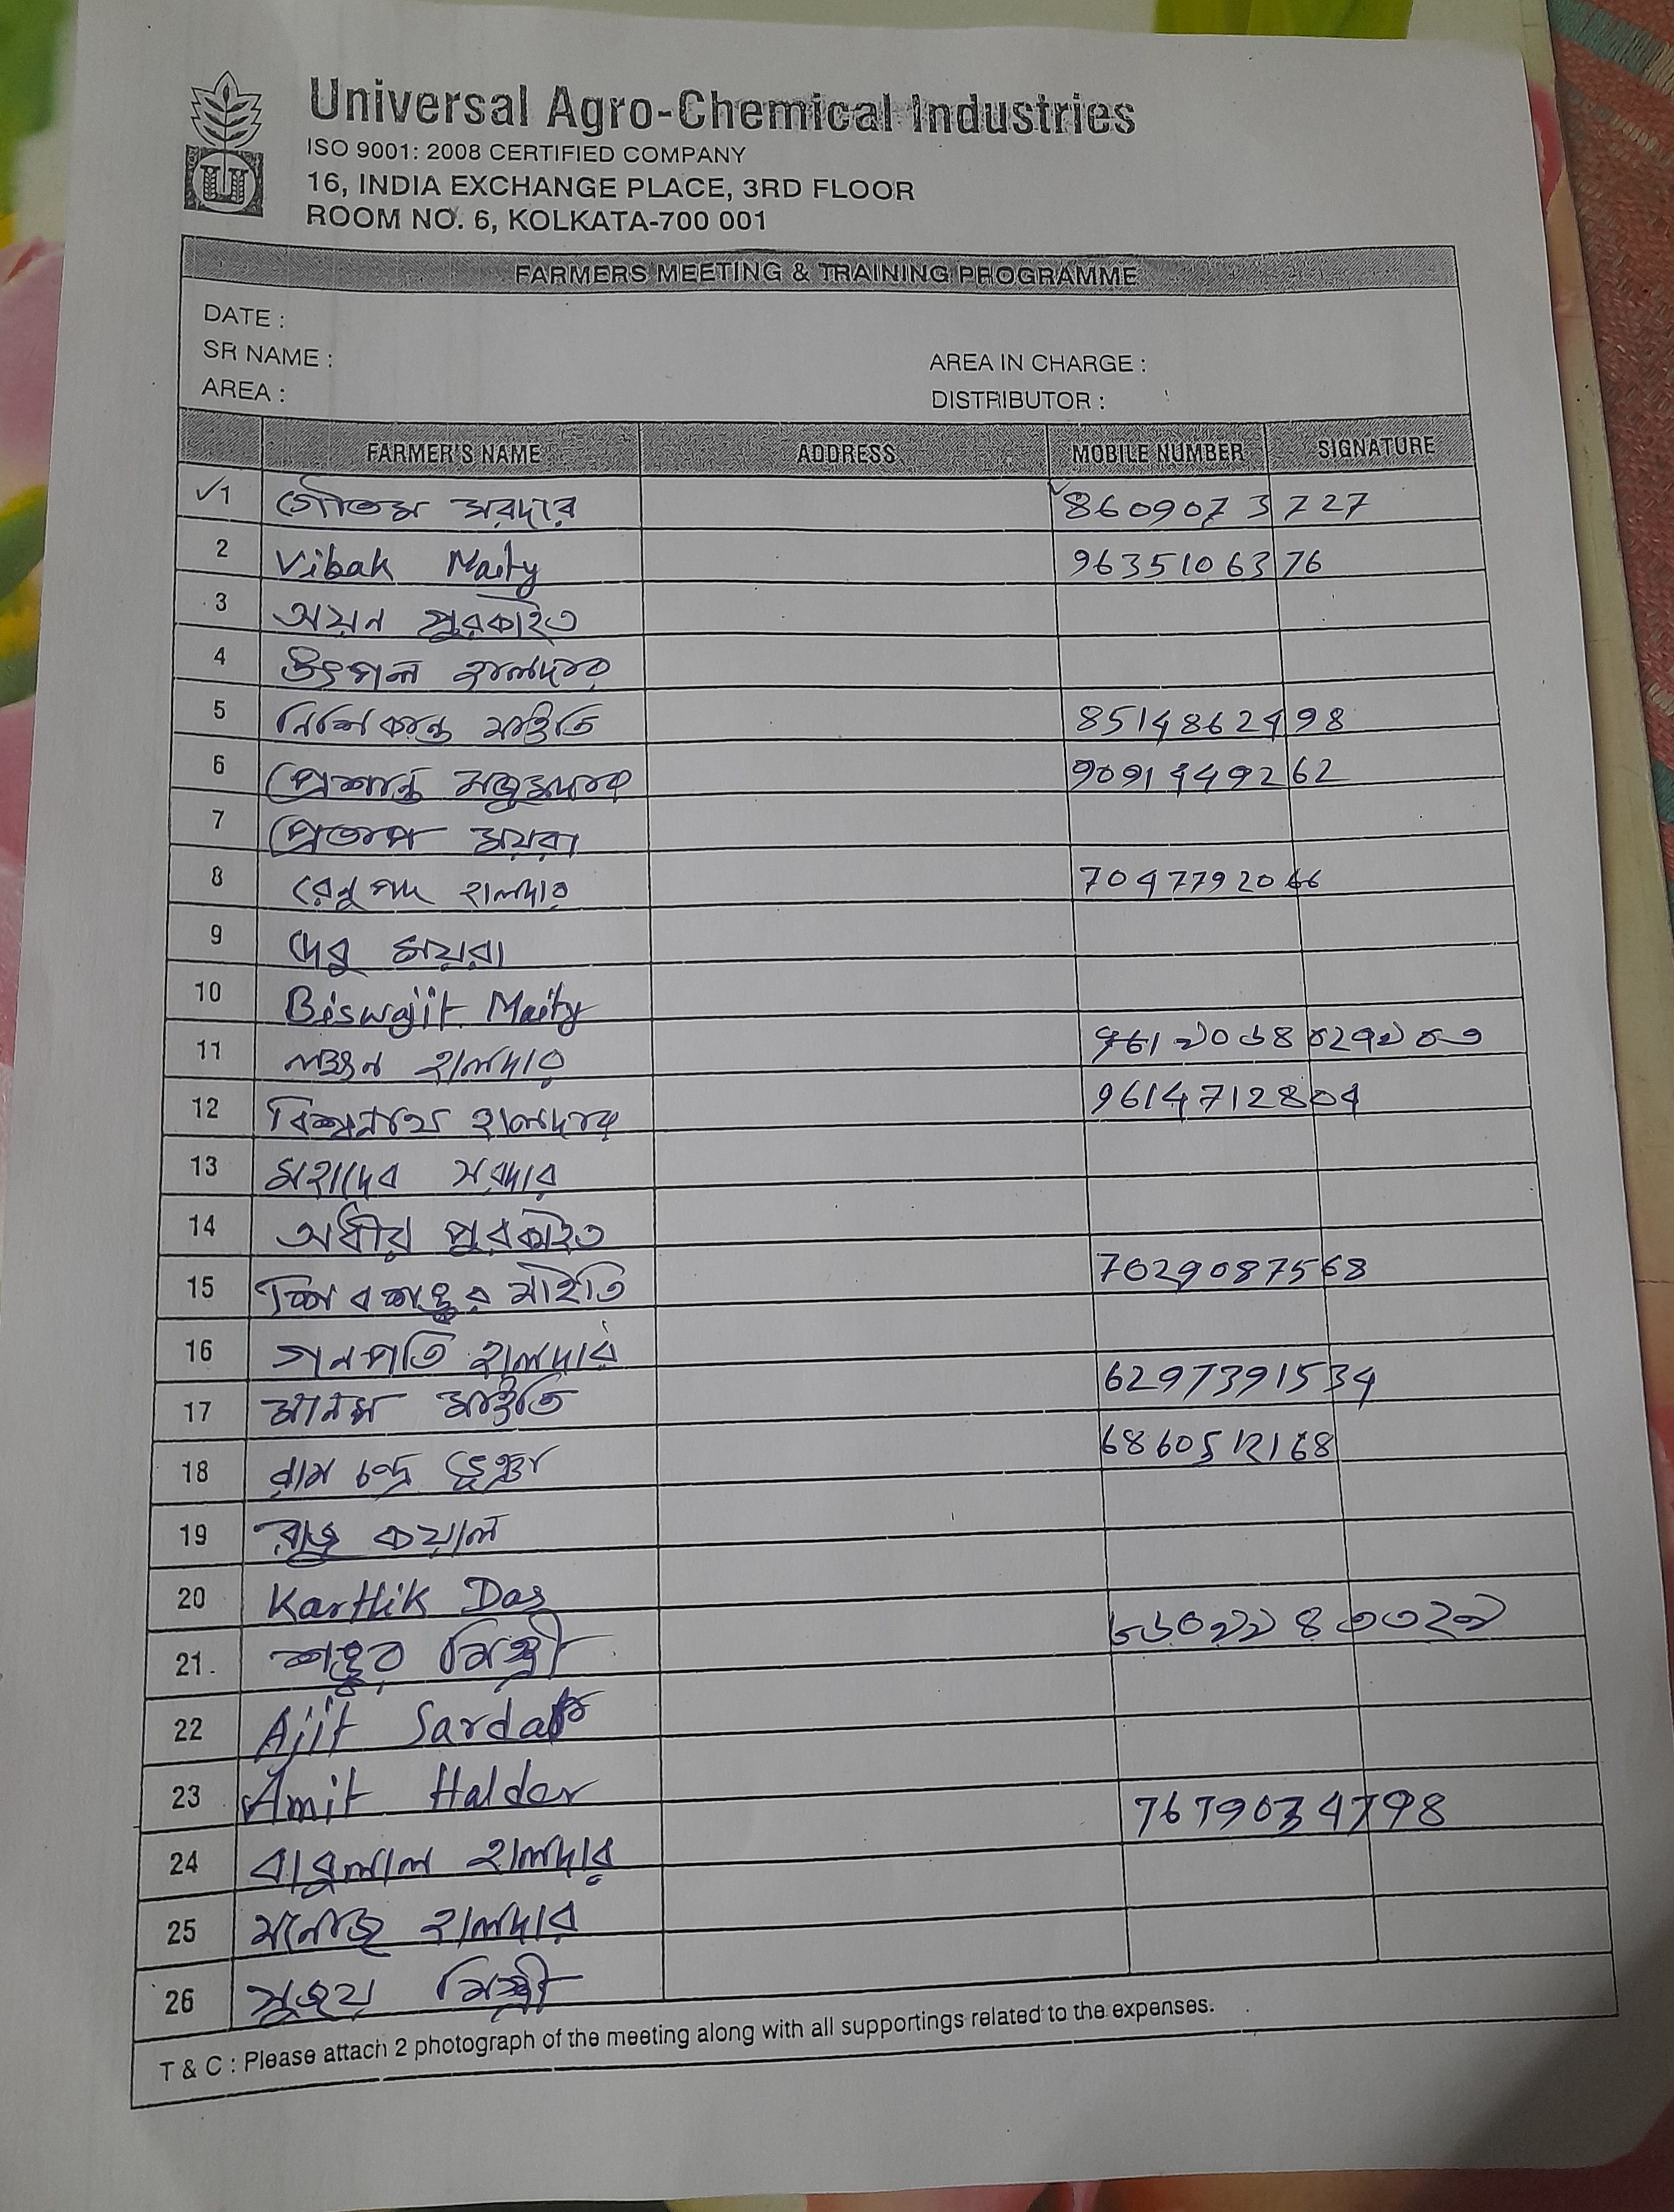 Universal Agro-Chemical Industries
ISO 9001: 2008 CERTIFIED COMPANY
16, INDIA EXCHANGE PLACE, 3RD FLOOR
ROOM NO. 6, KOLKATA-700 001
FARMERS MEETING & TRAINING PROGRAMME
DATE :
SR NAME : AREA IN CHARGE :
AREA : DISTRIBUTOR :
FARMER'S NAME ADDRESS MOBILE NUMBER SIGNATURE
✓1 গৌতম সরদার 8609073727
2 Vibak Maity 9635106376
3 অয়ন পুরকাইত
4 উৎপল হালদার
5 নিশিকান্ত মাইতি 8514862498
6 প্রশান্ত মজুমদার 9091449262
7 প্রতাপ ময়রা
8 রেনুপদ হালদার 7047792066
9 দেবু ময়রা
10 Biswajit Maity
11 হালদার
12 বিশ্বনাথ হালদার 9614712804
13 মহাদেব সরদার
14 অধীর পুরকাইত
15 শিবশঙ্কর মাইতি 7029087568
16 গনপতি হালদার
17 মানস মাইতি 6297391534
18 রাম চন্দ্র
19 রাজু কয়াল
20 Karttik Das
21. শঙ্কর মিস্ত্রী
22 Ajit Sardar
23 Amit Halder 7679034798
24 বাবুলাল হালদার
25 মনোজ হালদার
26 সুজয় মিস্ত্রী
T & C : Please attach 2 photograph of the meeting along with all supportings related to the expenses.